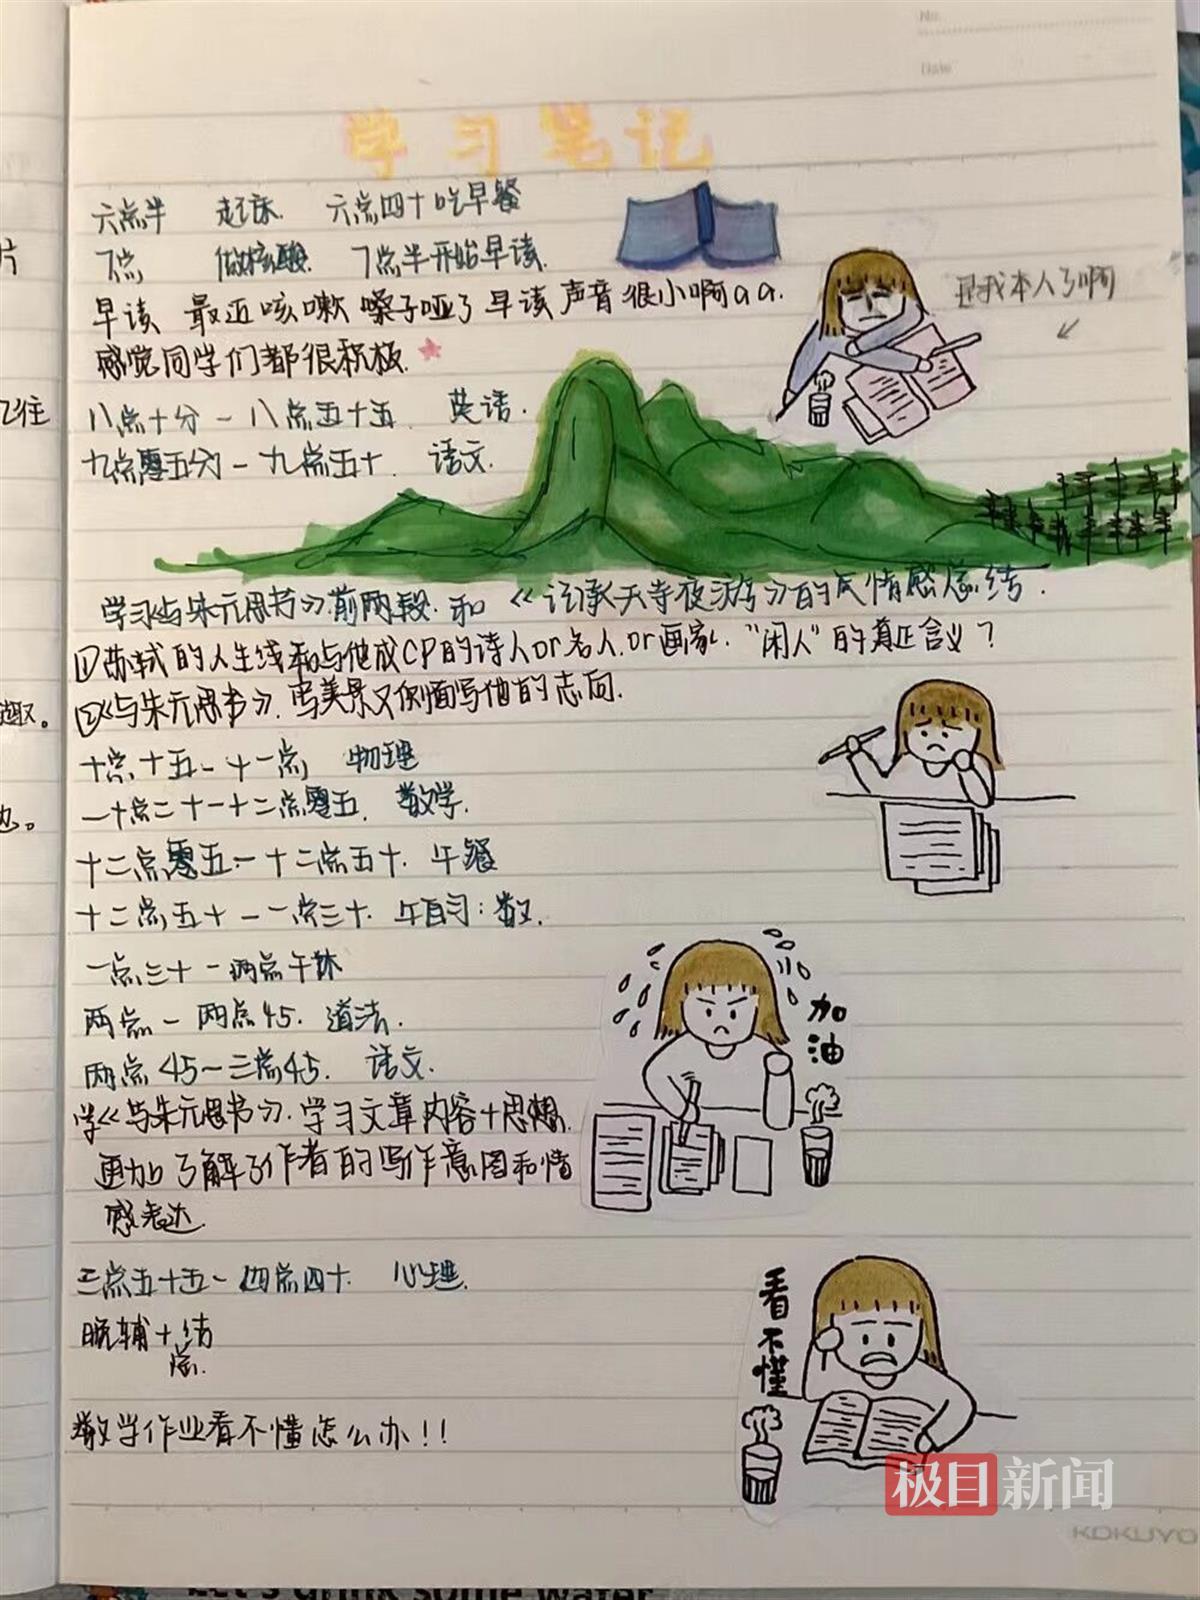 No.
Date
学习笔记
六点半 起床. 六点四十吃早餐
7点 做核酸. 7点半开始早读.
早读 最近咳嗽 嗓子哑了 早读声音很小啊aa.
感觉同学们都很积极.
是我本人了啊
八点十分-八点五十五 英语.
九点零五分-九点五十. 语文.
学习《与朱元思书》前两段. 和《记承天寺夜游》的
情感总结.
①苏轼的人生线和与他成CP的诗人or名人.or画家. "闲人"的真正含义?
②《与朱元思书》. 写美景又侧面写他的志向.
十点十五-十一点 物理
一十点二十-十二点零五. 数学.
十二点零五-十二点五十. 午餐
十二点五十-一点三十. 午自习:数.
一点三十-两点午休
两点-两点45. 道法.
加油
两点45-三点45. 语文.
学《与朱元思书》. 学习文章内容+思想.
更加了解了作者的写作意图和情
感表达.
三点五十五-四点四十. 心理.
晚辅+总结.
看不懂
数学作业看不懂怎么办!!
极目新闻
KOKUYO
片
飞往
趣。
边。
Let's drink some water